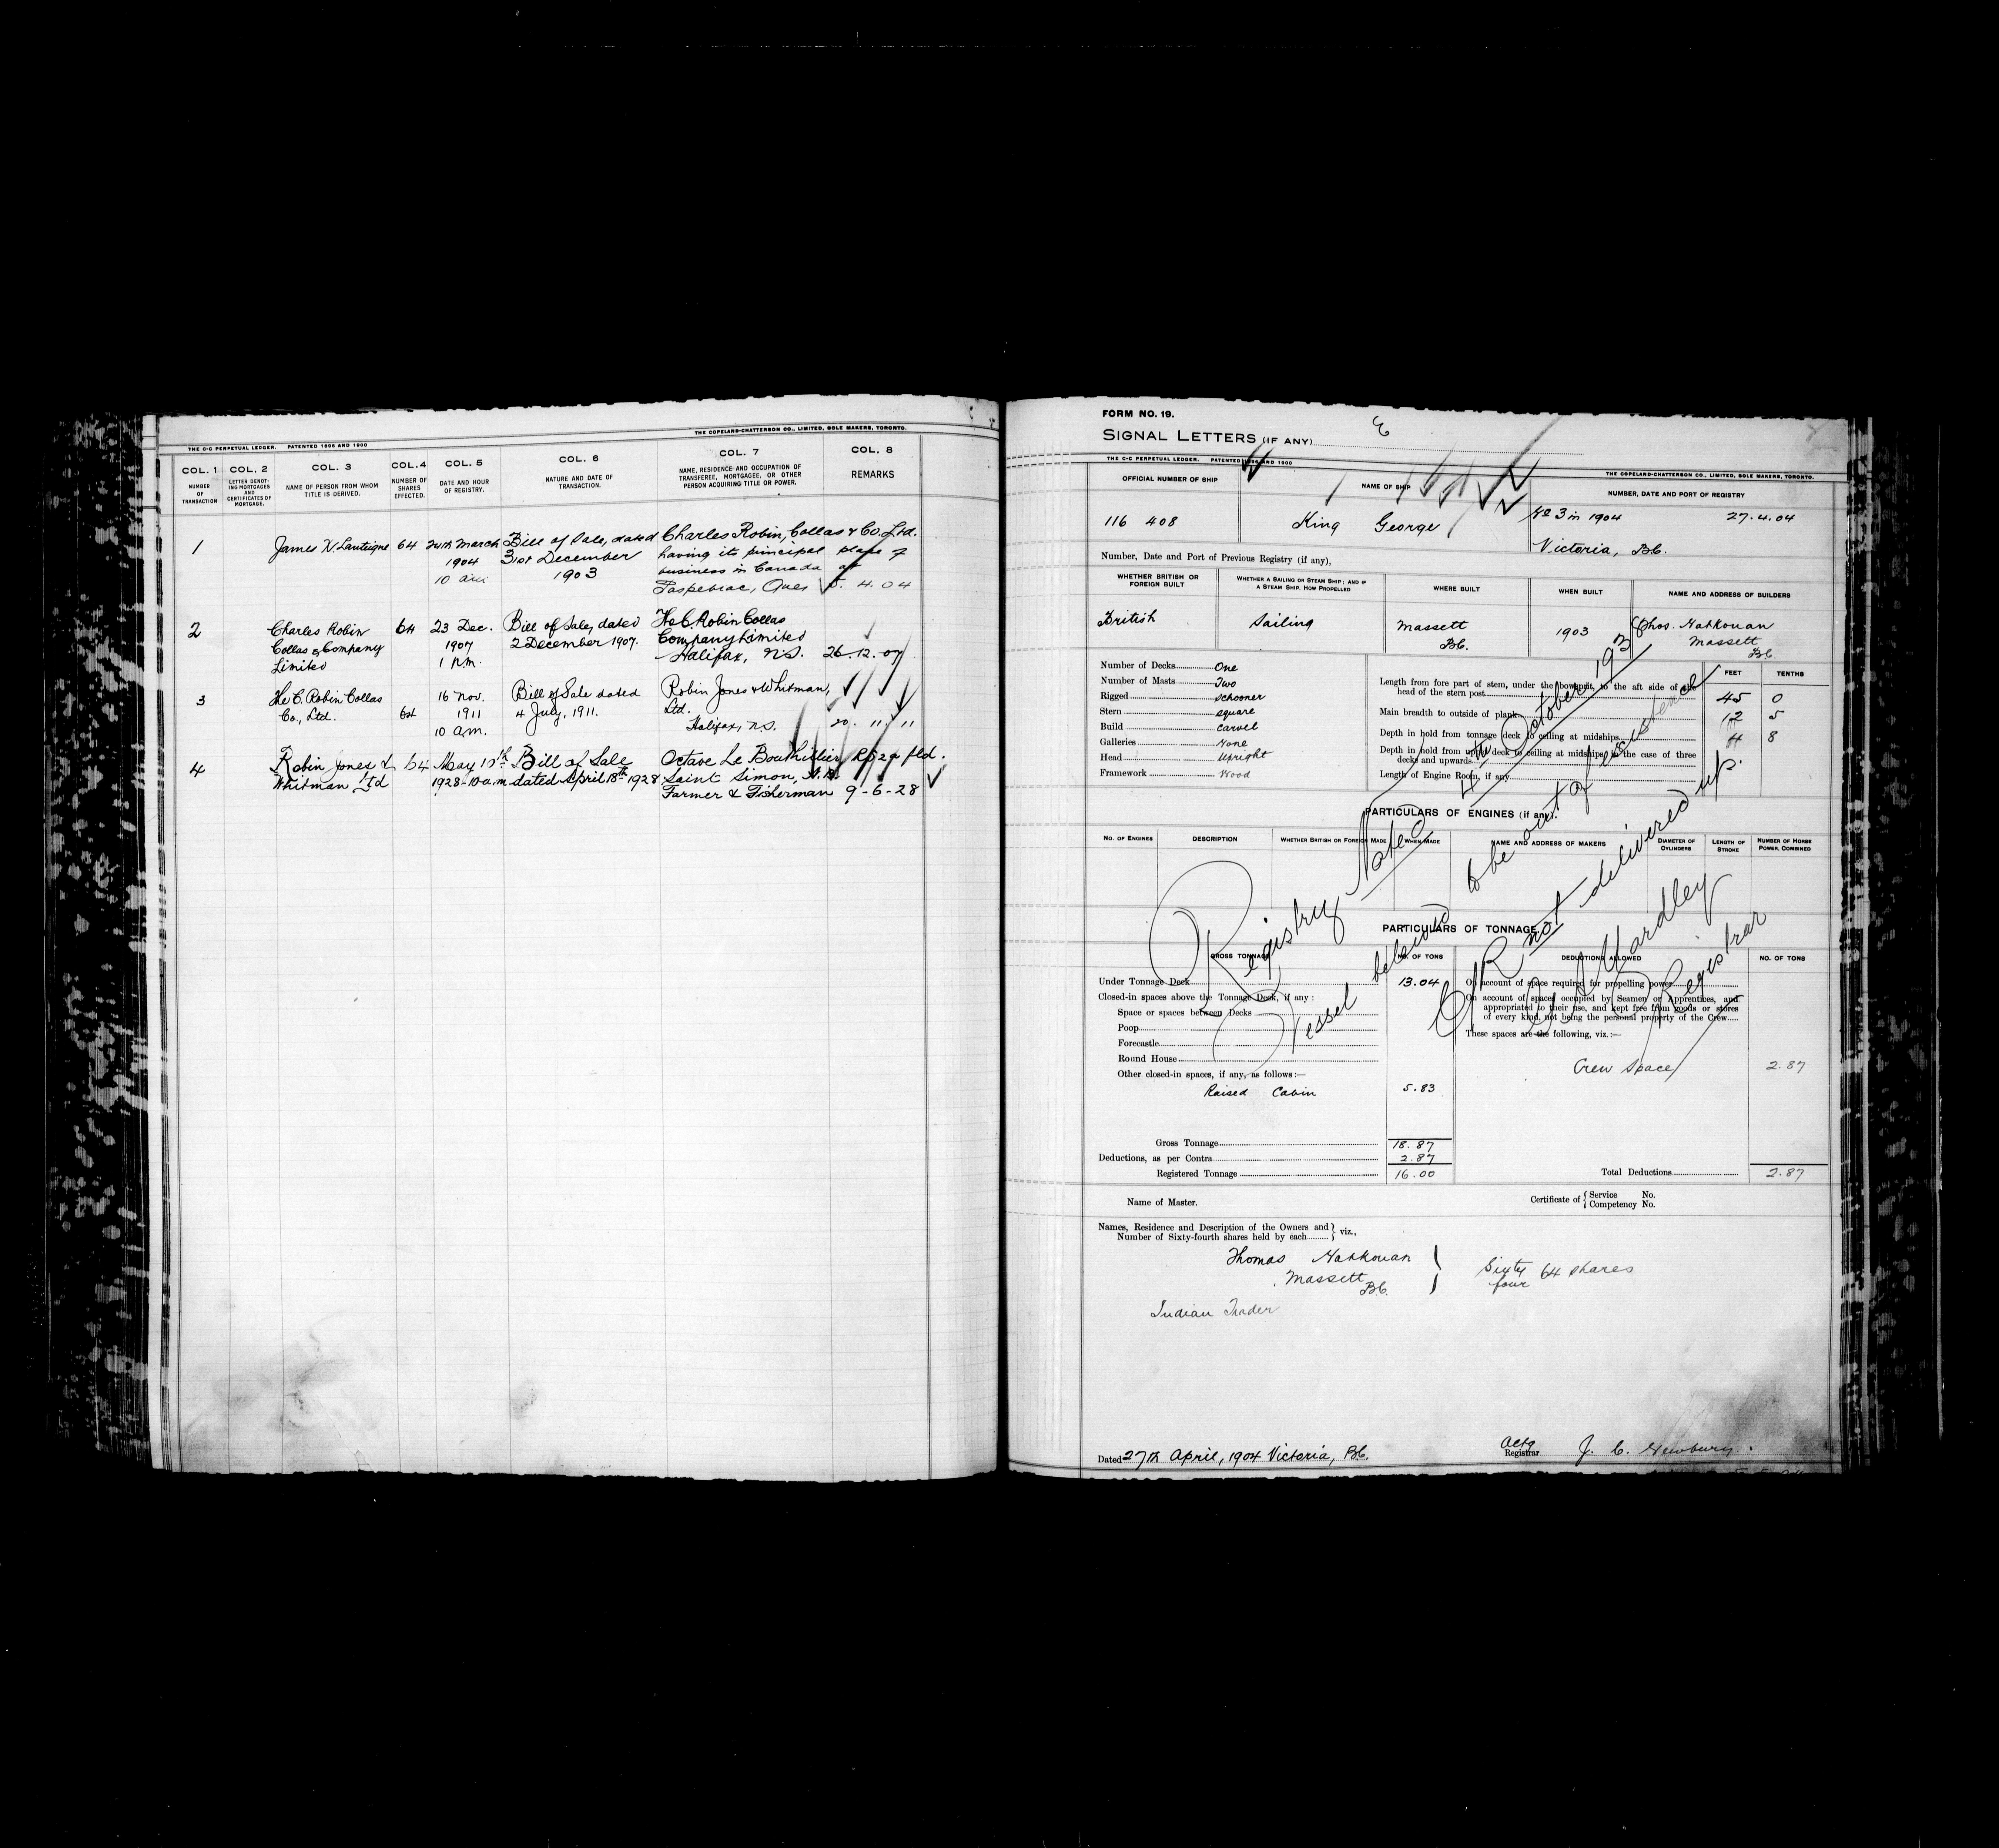 THE C-C PERPETUAL LEDGER. PATENTED 1896 AND 1900 THE COPELAND-CHATTERSON CO., LIMITED, SOLE MAKERS, TORONTO.
COL. 1 COL. 2 COL. 3 COL. 4 COL. 5 COL. 6 COL. 7 COL. 8
NUMBER OF TRANSACTION
LETTER DENOTING MORTGAGES AND CERTIFICATES OF MORTGAGE.
NAME OF PERSON FROM WHOM TITLE IS DERIVED.
NUMBER OF SHARES EFFECTED.
DATE AND HOUR OF REGISTRY.
NATURE AND DATE OF TRANSACTION.
NAME, RESIDENCE AND OCCUPATION OF TRANSFEREE, MORTGAGEE, OR OTHER PERSON ACQUIRING TITLE OR POWER.
REMARKS
1 James N. Lanteigne 64 24th March Bill of Sale, dated Charles Robin, Collas & Co. Ltd.
1904 31st December having its principal place of
10 am 1903 business in Canada at
Paspebiac, Que 5. 4. 04
2 Charles Robin 64 23 Dec. Bill of Sale, dated The C. Robin Collas
Collas & Company 1907 2 December 1907. Company Limited
Limited 1 p.m. Halifax, N.S. 26.12.07
3 The C. Robin Collas 16 Nov. Bill of Sale dated Robin Jones & Whitman,
Co., Ltd. 64 1911 4 July, 1911. Ltd.
10 a.m. Halifax, N.S. 20. 11. 11
4 Robin Jones & 64 May Bill of Sale Octave Le Bouthillier
Whitman Ltd 1928-10 a.m. dated April 18th 1928 Saint Simon, N.B.
Farmer & Fisherman 9-6-28
FORM NO. 19.
SIGNAL LETTERS (IF ANY)
THE C-C PERPETUAL LEDGER. PATENTED 1896 AND 1900 THE COPELAND-CHATTERSON CO., LIMITED, SOLE MAKERS, TORONTO.
OFFICIAL NUMBER OF SHIP NAME OF SHIP NUMBER, DATE AND PORT OF REGISTRY
116 408 King George No 3 in 1904 27.4.04
Victoria, B.C.
Number, Date and Port of Previous Registry (if any),
WHETHER BRITISH OR FOREIGN BUILT
WHETHER A SAILING OR STEAM SHIP; AND IF A STEAM SHIP, HOW PROPELLED
WHERE BUILT WHEN BUILT NAME AND ADDRESS OF BUILDERS
British Sailing Massett 1903 Thos. Hahkouan
B.C. Massett
B.C.
Number of Decks One
Number of Masts Two
Rigged schooner
Stern square
Build carvel
Galleries None
Head Upright
Framework Wood
FEET TENTHS
Length from fore part of stem, under the bowsprit, to the aft side of the
head of the stern post 45 0
Main breadth to outside of plank 12 5
Depth in hold from tonnage deck to ceiling at midships 4 8
Depth in hold from upper deck to ceiling at midships, in the case of three
decks and upwards
Length of Engine Room, if any
PARTICULARS OF ENGINES (if any).
NO. OF ENGINES DESCRIPTION WHETHER BRITISH OR FOREIGN MADE WHEN MADE NAME AND ADDRESS OF MAKERS DIAMETER OF CYLINDERS LENGTH OF STROKE NUMBER OF HORSE POWER, COMBINED
Registry Noted 4th October, 193
Vessel believed to be out of existence
C/R not delivered up.
Yardley
Registrar
PARTICULARS OF TONNAGE
GROSS TONNAGE NO. OF TONS DEDUCTIONS ALLOWED NO. OF TONS
Under Tonnage Deck 13.04
Closed-in spaces above the Tonnage Deck, if any:
Space or spaces between Decks
Poop
Forecastle
Round House
Other closed-in spaces, if any, as follows:—
Raised Cabin 5.83
Gross Tonnage 18.87
Deductions, as per Contra 2.87
Registered Tonnage 16.00
On account of space required for propelling power
On account of spaces occupied by Seamen or Apprentices, and
appropriated to their use, and kept free from goods or stores
of every kind, not being the personal property of the Crew
These spaces are the following, viz.:—
Crew space 2.87
Total Deductions 2.87
Name of Master. Certificate of { Service No.
Competency No.
Names, Residence and Description of the Owners and
Number of Sixty-fourth shares held by each } viz.,
Thomas Hahkouan
Massett
B.C.
Sixty four 64 shares
Indian Trader
Dated 27th April, 1904 Victoria, B.C.
Actg Registrar J. C. Newbury.